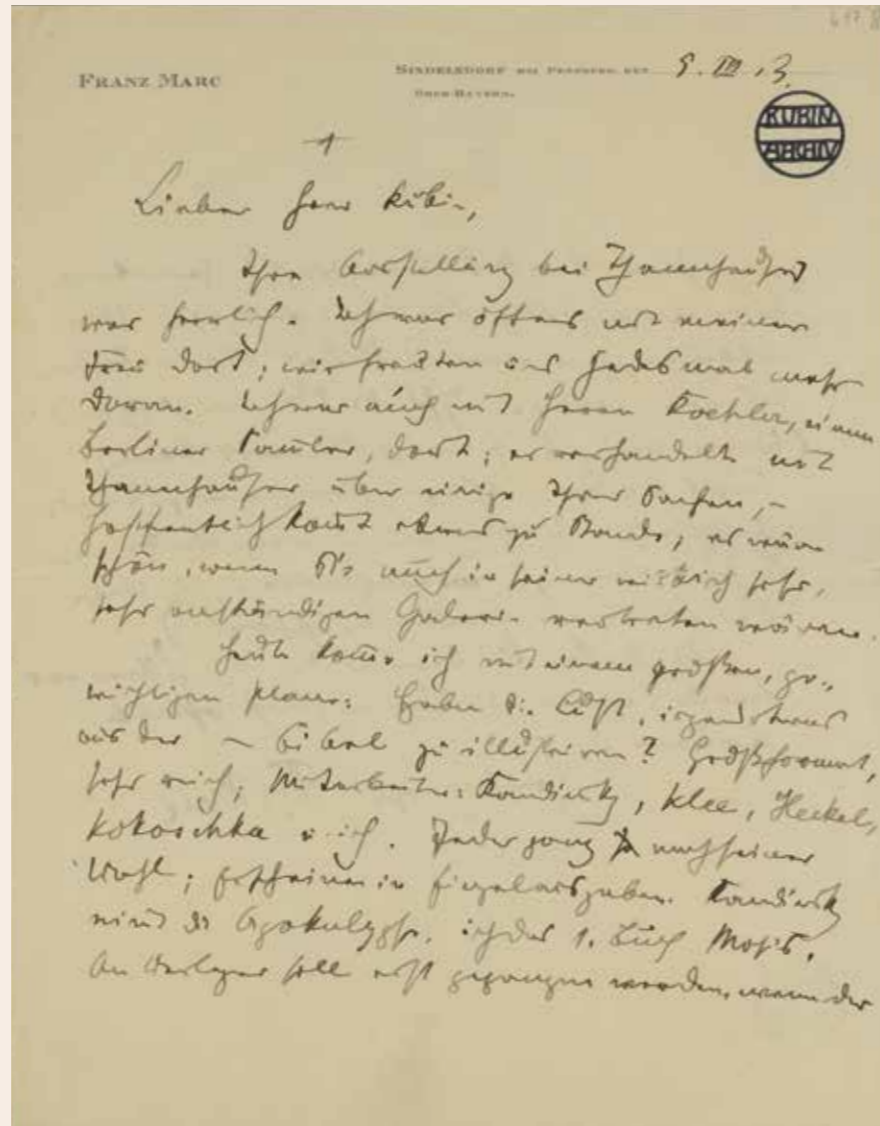 FRANZ MARC
SINDELSDORF BEI PENZBERG, DEN
OBER-BAYERN.
III. 13.
KUBIN
ARCHIV
Lieber Herr Kubin,
Ihre Ausstellung bei Thannhauser
war herrlich. Ich war öfters mit meiner
Frau dort; wir freuten uns jedesmal mehr
daran. Ich war auch mit Herrn Koehler, einem
Berliner Samler, dort; er verhandelte mit
Thannhauser über einige Ihrer Sachen, –
hoffentlich komt etwas zu Stande; es wäre
schön, wenn Sie auch in seiner wirklich sehr,
sehr anständigen Galerie vertreten wären.
Heute kome ich mit einem großen, ge-
wichtigen Plane: Haben Sie Lust, irgendetwas
aus der – Bibel zu illustriren? Großformat,
sehr reich; Mitarbeiter: Kandinsky, Klee, Heckel,
Kokoschka u. ich. Jeder ganz nach seiner
Wahl; Erscheinen in Einzelausgaben. Kandinsky
nimt die Apokalypse, ich das 1. Buch Mosis.
An Verleger soll erst gegangen werden, wenn der